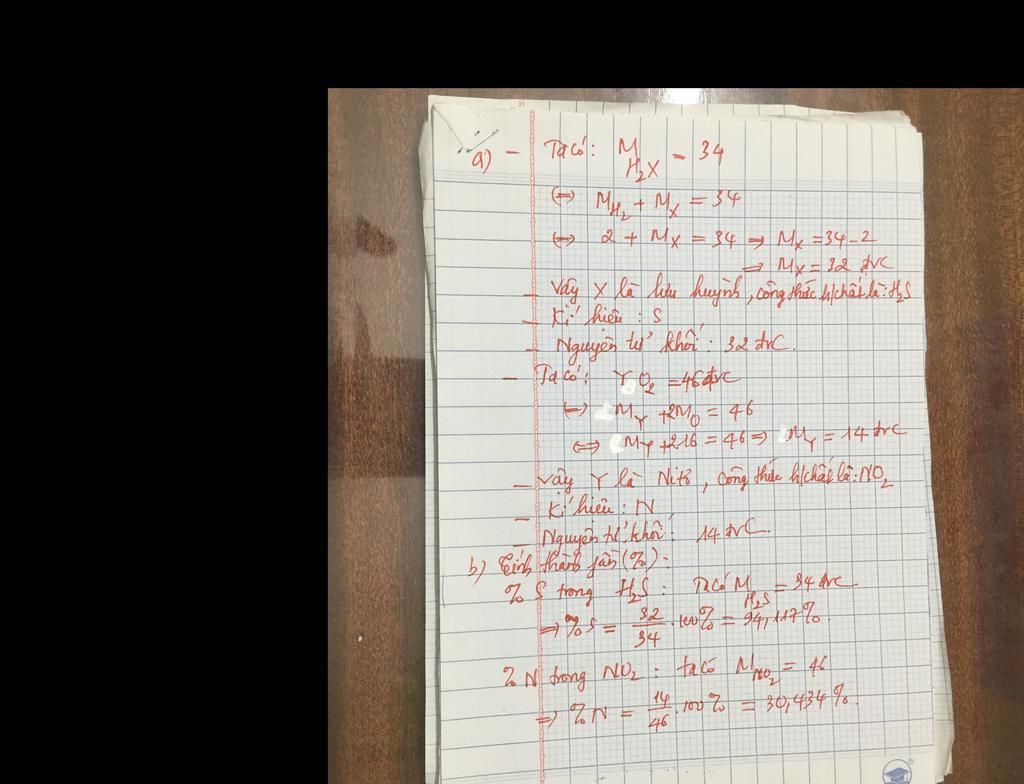 a) - Ta có: M H₂X = 34
⇔ M H₂ + M X = 34
⇔ 2 + M X = 34 ⇒ M X = 34 - 2
⇒ M X = 32 đvC
- Vậy X là lưu huỳnh, công thức h/chất là: H₂S
- Kí hiệu: S
- Nguyên tử khối: 32 đvC.
- Ta có: Y O₂ = 46 đvC
⇔ M Y + 2M O = 46
⇔ M Y + 2.16 = 46 ⇒ M Y = 14 đvC
- Vậy Y là Nitơ, công thức h/chất là: NO₂
- Kí hiệu: N
- Nguyên tử khối: 14 đvC.
b) Tính thành fần (%):
% S trong H₂S: Ta có M H₂S = 34 đvC
⇒ % S = 32/34 . 100% = 94,117%.
% N trong NO₂: ta có M NO₂ = 46
⇒ % N = 14/46 . 100% = 30,434%.